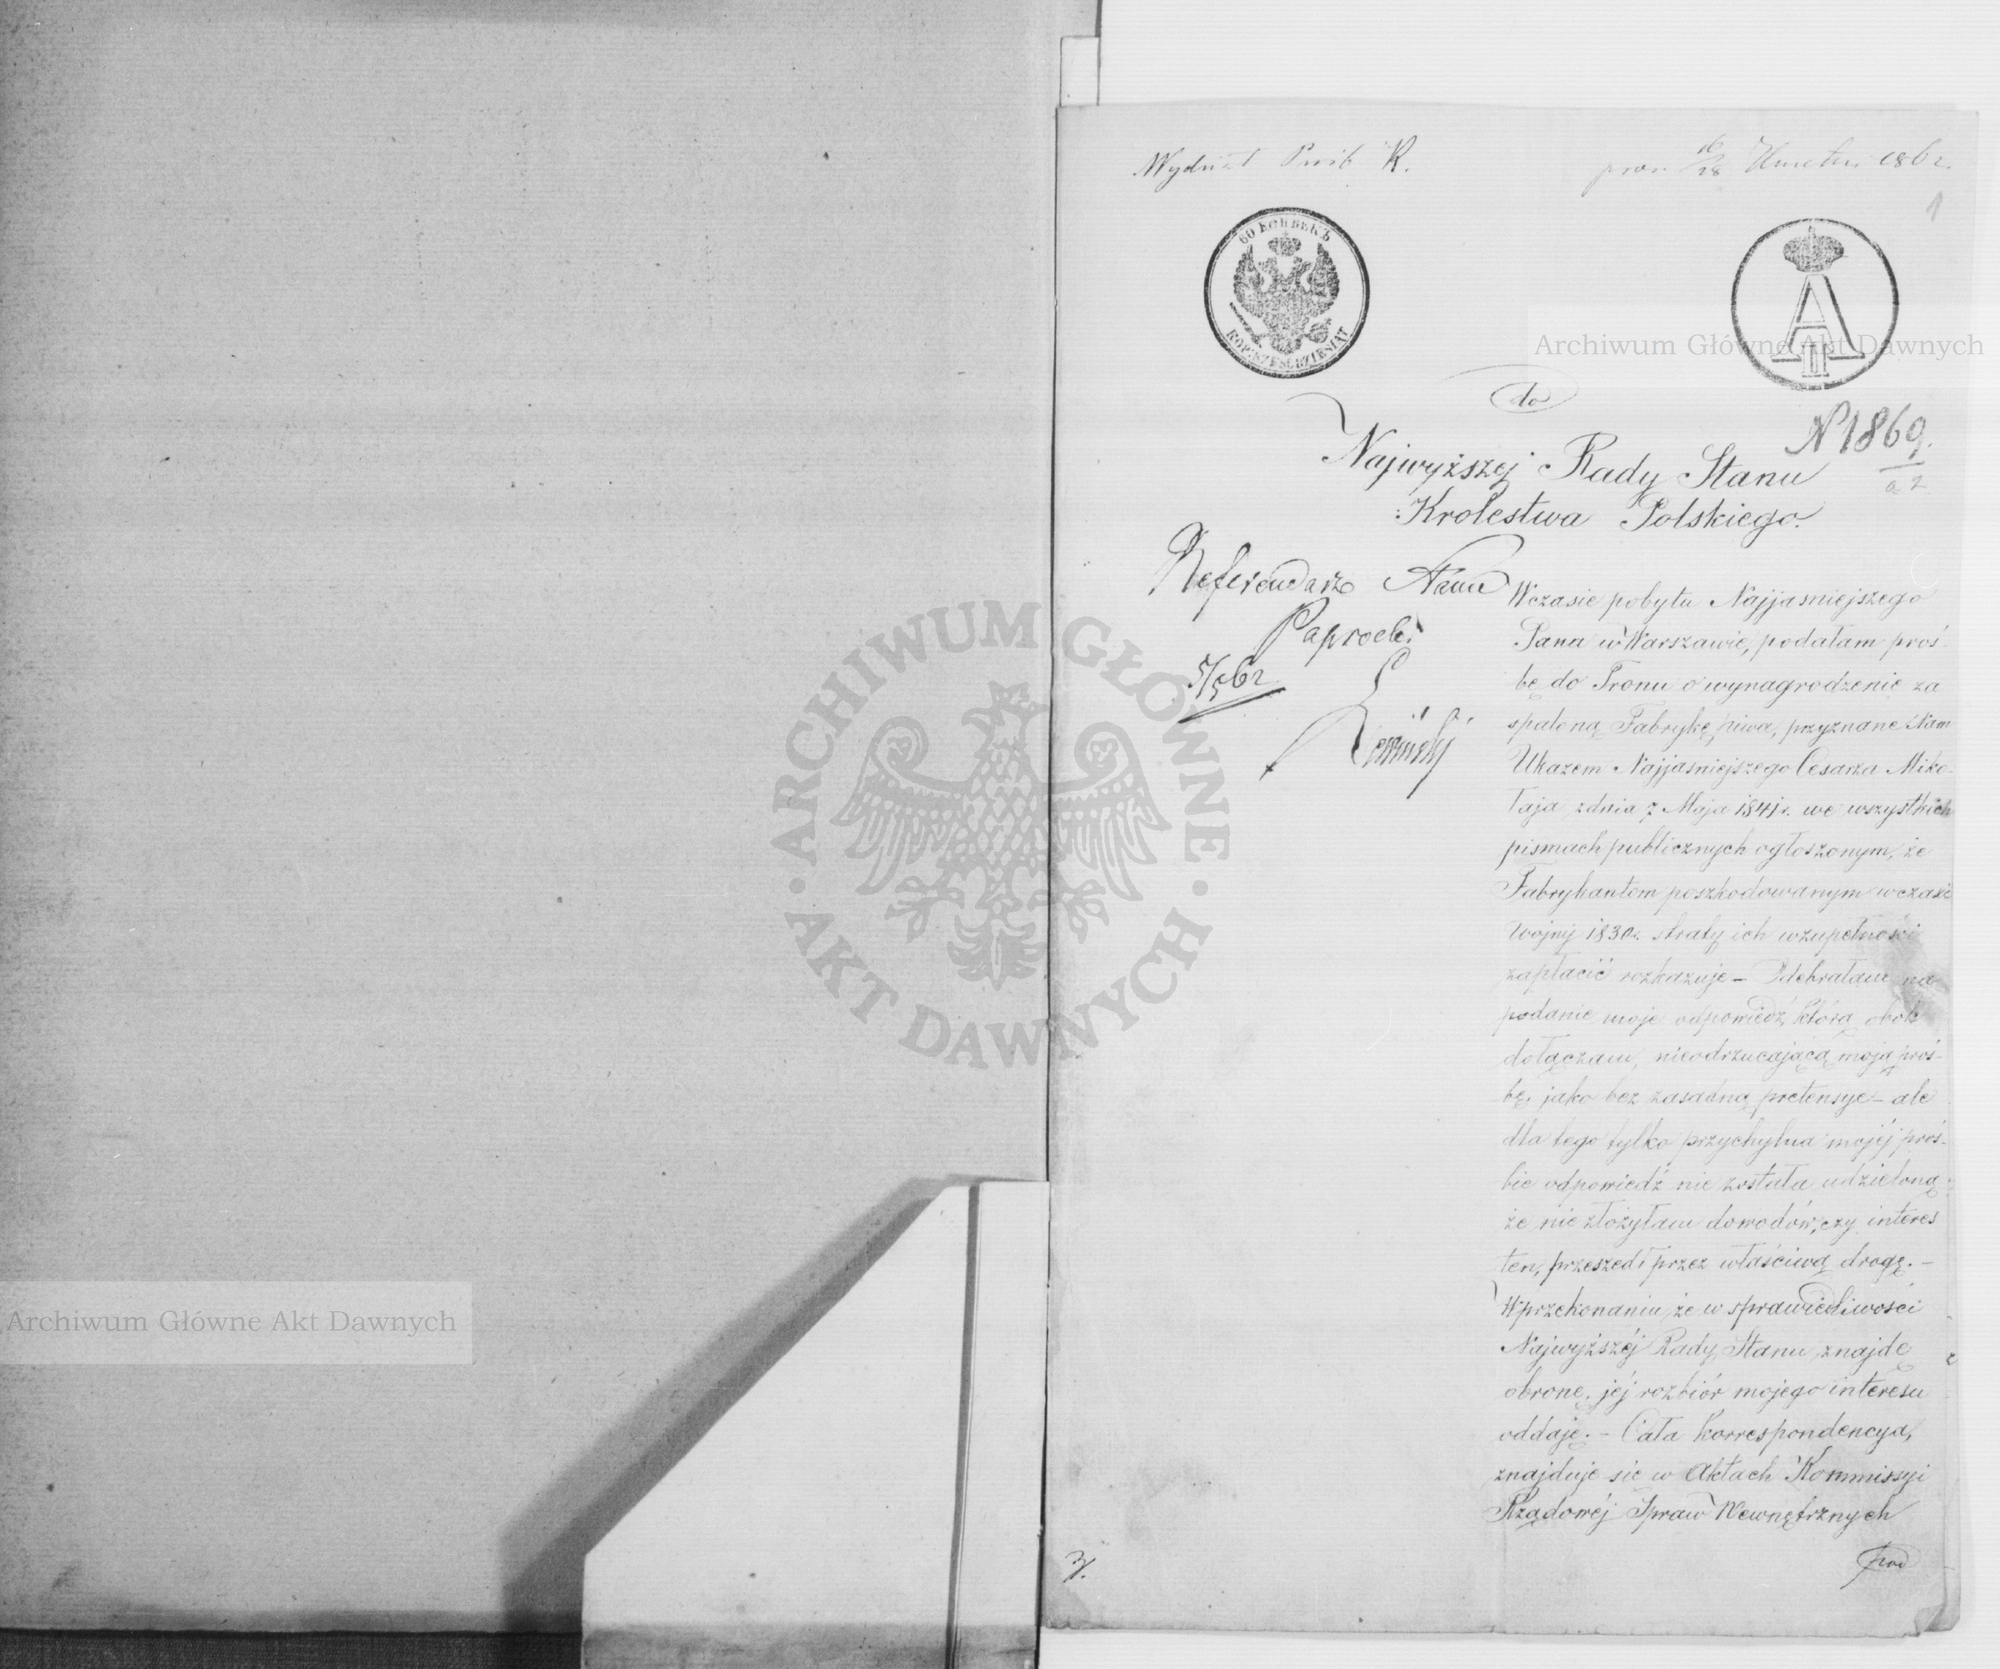 Wydział Próśb R.
pras. 16/28 Kwietnia 1862.
1
60 КОПѢЕКЪ
KOP. SZEŚĆDZIESIĄT
A II
do
N 1869.
a 2
Najwyższej Rady Stanu
Krolestwa Polskiego.
Referendarz Stanu
Paprocki
5/5 62
Wczasie pobytu Najjasniejszego
Pana w Warszawie, podałam proś-
bę do Tronu o wynagrodzenie za
spaloną Fabrykę piwa, przyznane Nam
Ukazem Najjasniejszego Cesarza Miko-
łaja zdnia 7 Maja 1841 r. we wszystkich
pismach publicznych ogłoszonym, że
Fabrykantom poszkodowanym w czasie
Wojny 1830 r. straty ich wzupełności
zapłacić rozkazuje – Odebrałam na
podanie moje odpowiedź, którą obok
dołączam, nieodrzucającą moją proś-
bę, jako bez zasadną pretensye – ale
dla tego tylko przychylna mojéj proś-
bie odpowiedź nie została udzieloną
że nie złożyłam dowodów, czy interes
ten, przeszedł przez właściwą drogę. –
W przekonaniu, że w sprawiedliwości
Najwyższéj Rady Stanu znajdę
obronę, jéj rozbiór mojego interesu
oddaję. – Cała korrespondencya,
znajduje się w Aktach Kommissyi
Rządowéj Spraw Wewnętrznych
pod
3/.
Archiwum Główne Akt Dawnych
ARCHIWUM GŁÓWNE · AKT DAWNYCH ·
Archiwum Główne Akt Dawnych